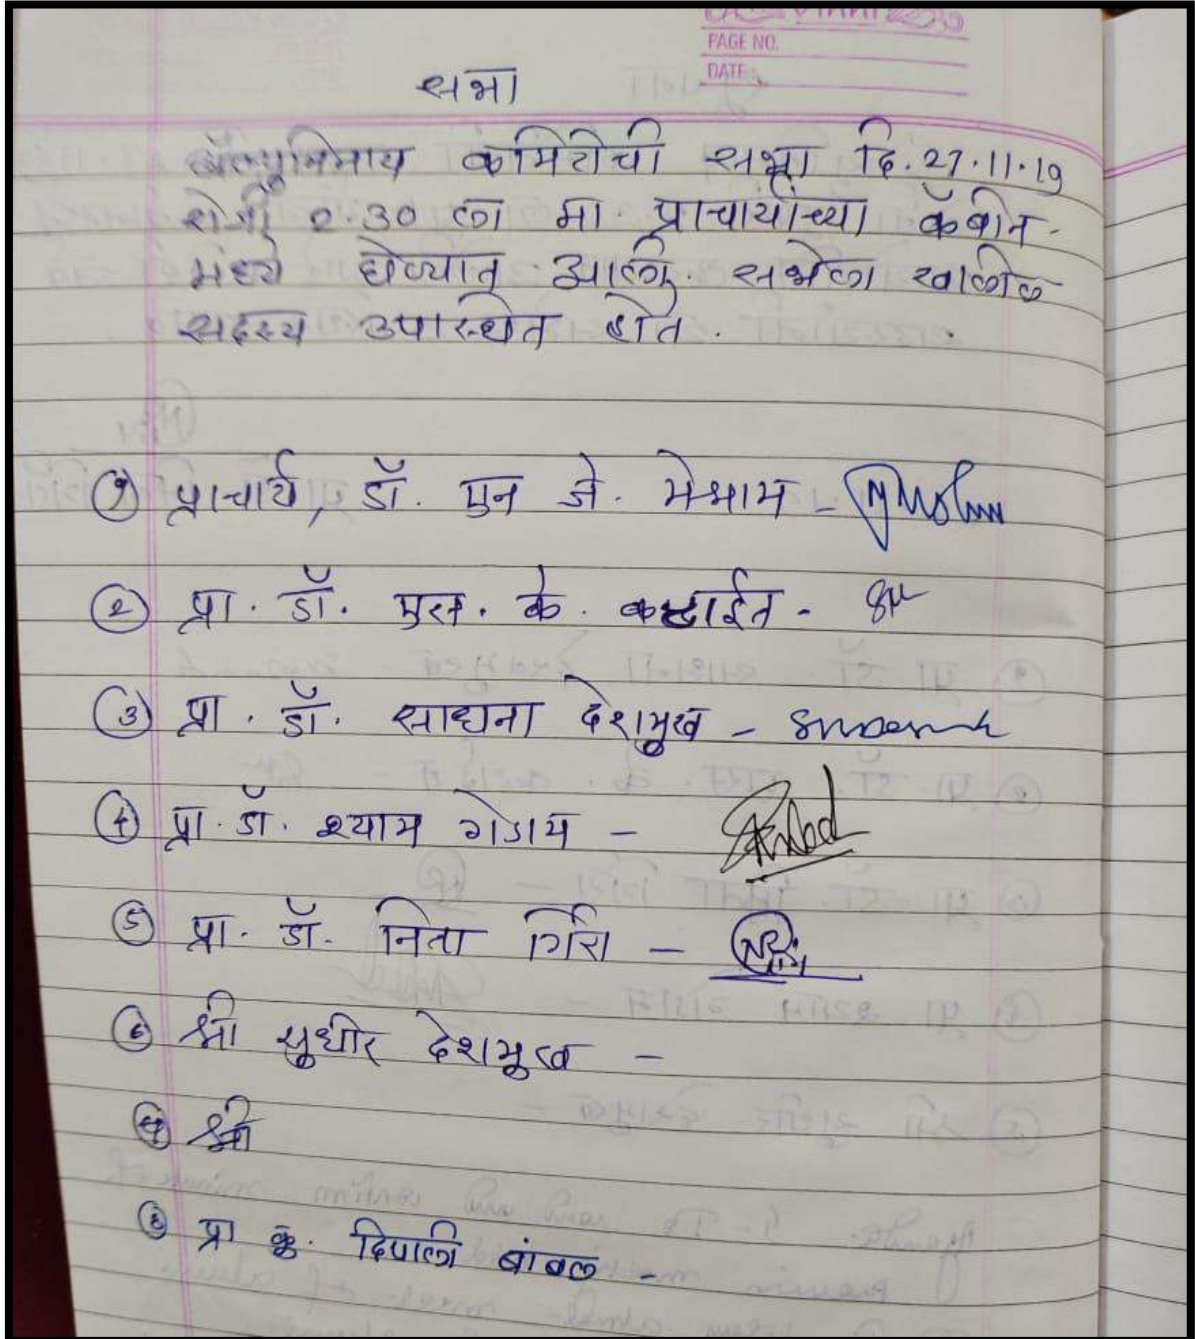 PAGE NO.
DATE:
सभा
कमिटीची सभा दि. 27.11.19
रोजी 2.30 ला मा. प्राचार्यांच्या कॅबीन-
मध्ये घेण्यात आली. सभेला खालील
सदस्य उपास्थित होते.
१ प्राचार्य, डॉ. एन जे. मेश्राम -
२ प्रा. डॉ. एस. के. -
३ प्रा. डॉ. साधना देशमुख -
४ प्रा. डॉ. श्याम गेडाम -
५ प्रा. डॉ. निता गिरी -
६ श्री सुधीर देशमूख -
श्री
८ प्रा कु. दिपाली बांबल -